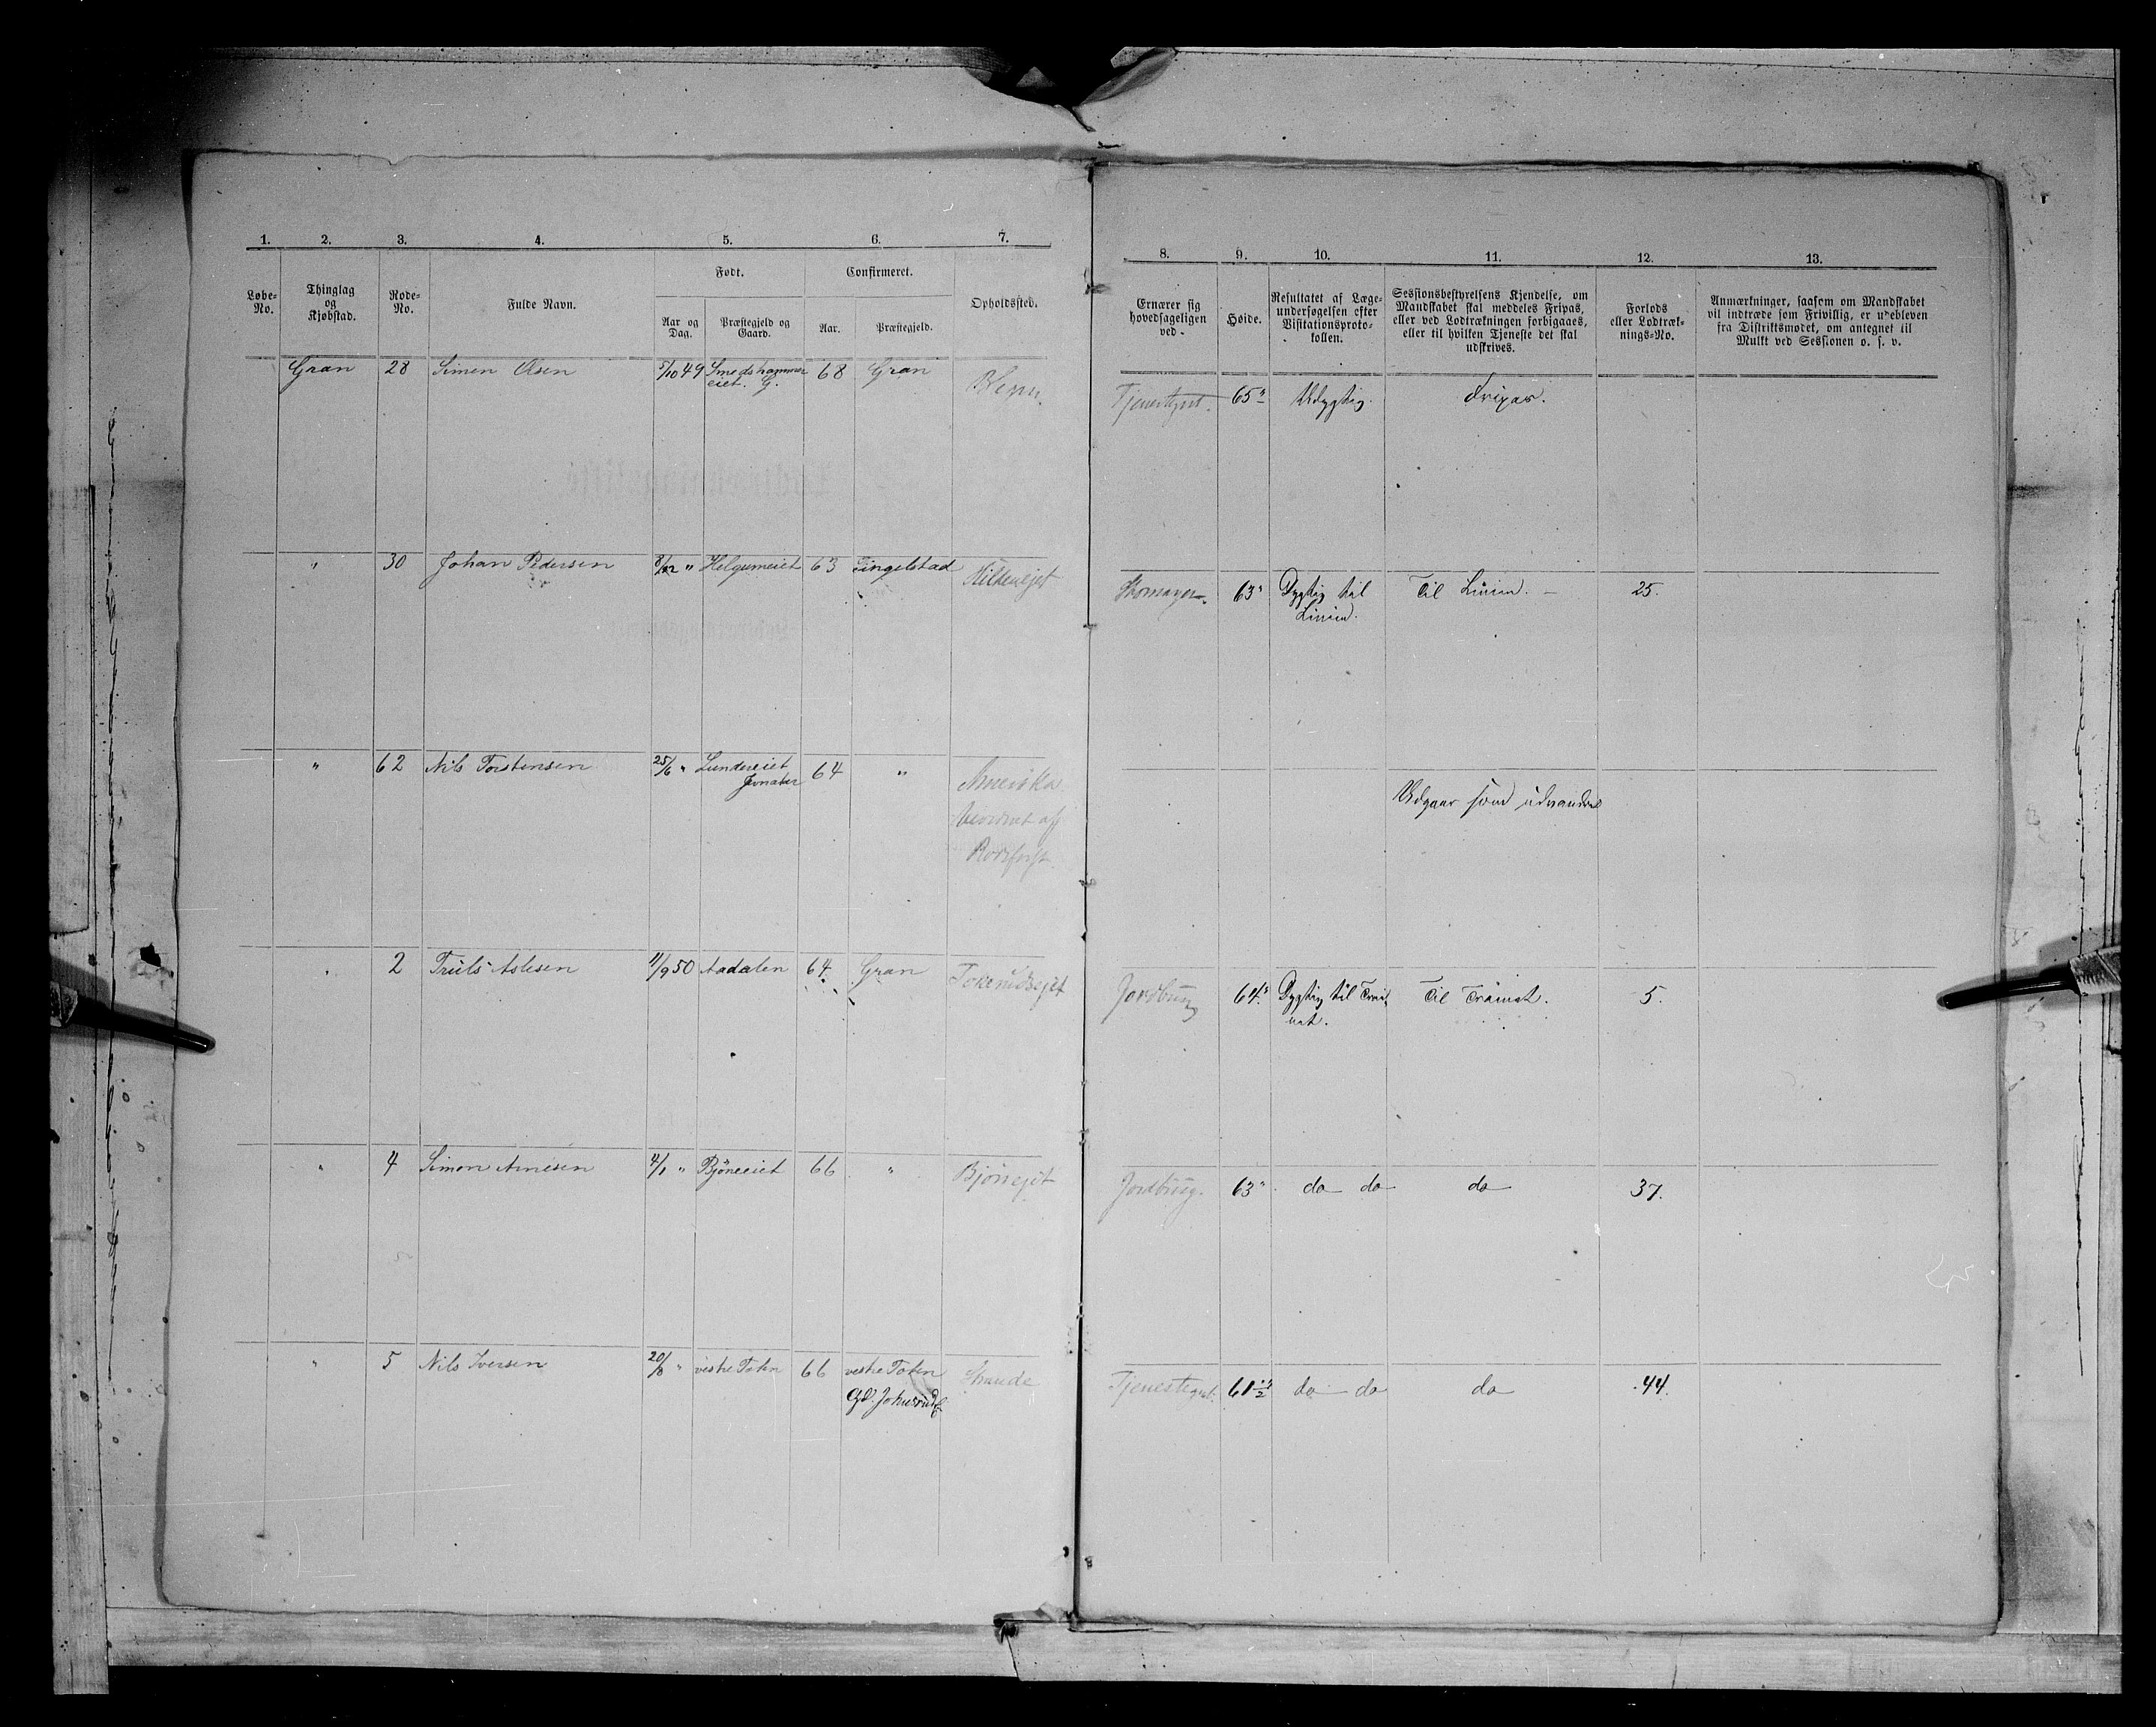 1. 2. 3. 4. 5. 6. 7.
Løbe-No. Thinglag og Kjøbstad. Rode-No. Fulde Navn. Født. Aar og Dag. Præstegjeld og Gaard. Confirmeret. Aar. Præstegjeld. Opholdssted.
8. 9. 10. 11. 12. 13.
Ernærer sig hovedsageligen ved. Høide. Resultatet af Lægeundersøgelsen efter Visitationsprotokollen. Sessionsbestyrelsens Kjendelse, om Mandskabet skal meddeles Fripas, eller ved Lodtrækningen forbigaaes, eller til hvilken Tjeneste det skal udskrives. Forlods eller Lodtræknings-No. Anmærkninger, saasom om Mandskabet vil indtræde som Frivillig, er udebleven fra Distriktsmødet, om antegnet til Mulkt ved Sessionen o. s. v.
Gran 28 Simen Olsen 5/10 49 Smedshammer 68 Gran
eiet. G.
65" Udygtig. Fripas.
" 30 Johan Pedersen " Helgumeiet 63 Tingelstad Hildenejet
Skomager. 63" Dygtig til Til Linien. – 25.
Linien.
" 62 Nils Torstensen 25/6 " Lundereiet 64 " Amerika
Jevnaker
Udgaar som udvandret
" 2 Truls Aslesen 11/9 50 Aadalen 64 Gran
Jordbrug 64" Dygtig til Trai- Til Trainet. 5.
net.
" 4 Simon Arnesen 4/1 " Bjöneeiet 66 " Bjöneejet
Jordbrug. 63" do do do 37.
" 5 Nils Iversen 20/8 " vestre Toten 66 vestre Toten
Gd. Johnsrud
Tjenestegut. 61½" do do do 44.